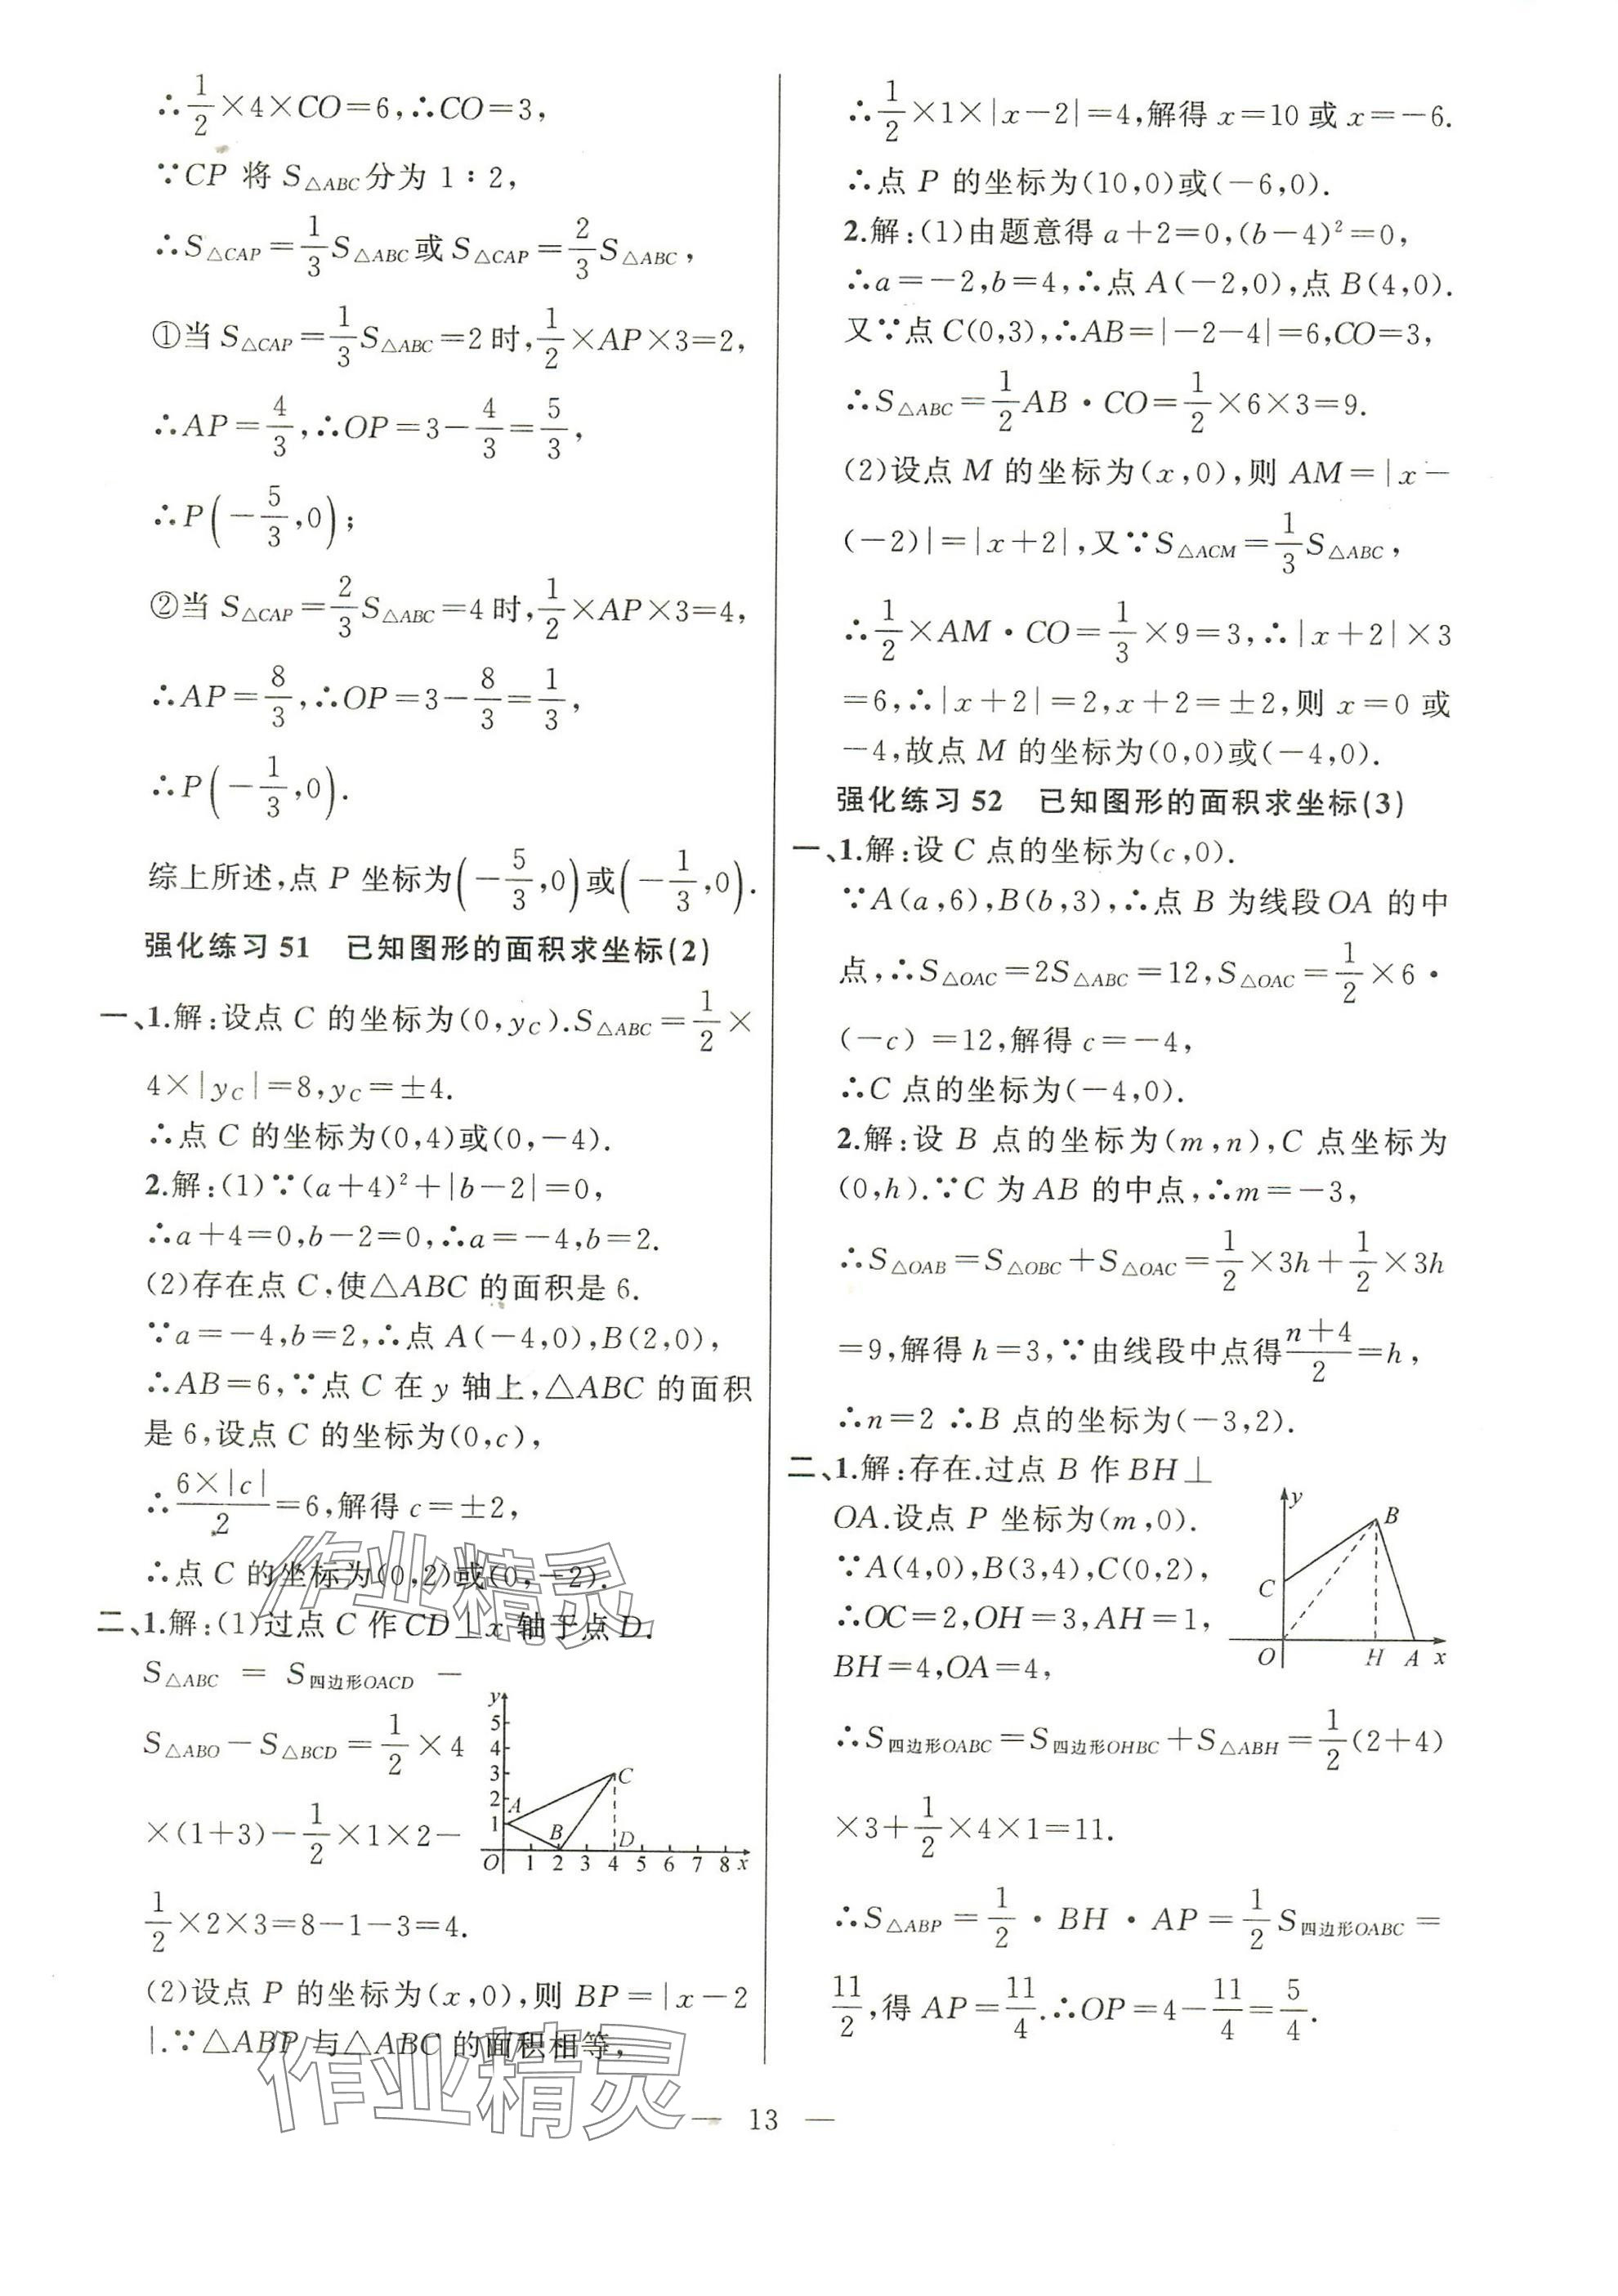 ∴1/2×4×CO=6,∴CO=3,
∵CP 将 S△ABC分为 1∶2,
∴S△CAP=1/3S△ABC或 S△CAP=2/3S△ABC,
①当 S△CAP=1/3S△ABC=2 时,1/2×AP×3=2,
∴AP=4/3,∴OP=3-4/3=5/3,
∴P(-5/3,0);
②当 S△CAP=2/3S△ABC=4 时,1/2×AP×3=4,
∴AP=8/3,∴OP=3-8/3=1/3,
∴P(-1/3,0).
综上所述,点 P 坐标为(-5/3,0)或(-1/3,0).
强化练习 51 已知图形的面积求坐标(2)
一、1.解:设点 C 的坐标为(0,yC).S△ABC=1/2×
4×|yC|=8,yC=±4.
∴点 C 的坐标为(0,4)或(0,-4).
2.解:(1)∵(a+4)²+|b-2|=0,
∴a+4=0,b-2=0,∴a=-4,b=2.
(2)存在点 C,使△ABC 的面积是 6.
∵a=-4,b=2,∴点 A(-4,0),B(2,0),
∴AB=6,∵点 C 在 y 轴上,△ABC 的面积
是 6,设点 C 的坐标为(0,c),
∴6×|c|/2=6,解得 c=±2,
∴点 C 的坐标为(0,2)或(0,-2).
二、1.解:(1)过点 C 作 CD⊥x 轴于点 D.
S△ABC = S四边形OACD -
S△ABO-S△BCD=1/2×4
×(1+3)-1/2×1×2-
1/2×2×3=8-1-3=4.
y
5
4
3
2
1
A
B
C
D
O 1 2 3 4 5 6 7 8 x
(2)设点 P 的坐标为(x,0),则 BP=|x-2
|.∵△ABP 与△ABC 的面积相等,
∴1/2×1×|x-2|=4,解得 x=10 或 x=-6.
∴点 P 的坐标为(10,0)或(-6,0).
2.解:(1)由题意得 a+2=0,(b-4)²=0,
∴a=-2,b=4,∴点 A(-2,0),点 B(4,0).
又∵点 C(0,3),∴AB=|-2-4|=6,CO=3,
∴S△ABC=1/2AB·CO=1/2×6×3=9.
(2)设点 M 的坐标为(x,0),则 AM=|x-
(-2)|=|x+2|,又∵S△ACM=1/3S△ABC,
∴1/2×AM·CO=1/3×9=3,∴|x+2|×3
=6,∴|x+2|=2,x+2=±2,则 x=0 或
-4,故点 M 的坐标为(0,0)或(-4,0).
强化练习 52 已知图形的面积求坐标(3)
一、1.解:设 C 点的坐标为(c,0).
∵A(a,6),B(b,3),∴点 B 为线段OA 的中
点,∴S△OAC=2S△ABC=12,S△OAC=1/2×6·
(-c)=12,解得 c=-4,
∴C 点的坐标为(-4,0).
2.解:设 B 点的坐标为(m,n),C 点坐标为
(0,h).∵C 为 AB 的中点,∴m=-3,
∴S△OAB=S△OBC+S△OAC=1/2×3h+1/2×3h
=9,解得 h=3,∵由线段中点得n+4/2=h,
∴n=2 ∴B 点的坐标为(-3,2).
二、1.解:存在.过点 B 作 BH⊥
OA.设点 P 坐标为(m,0).
∵A(4,0),B(3,4),C(0,2),
∴OC=2,OH=3,AH=1,
BH=4,OA=4,
y
B
C
O H A x
∴S四边形OABC=S四边形OHBC+S△ABH=1/2(2+4)
×3+1/2×4×1=11.
∴S△ABP=1/2·BH·AP=1/2S四边形OABC=
11/2,得 AP=11/4.∴OP=4-11/4=5/4.
作业精灵
作业精灵
— 13 —